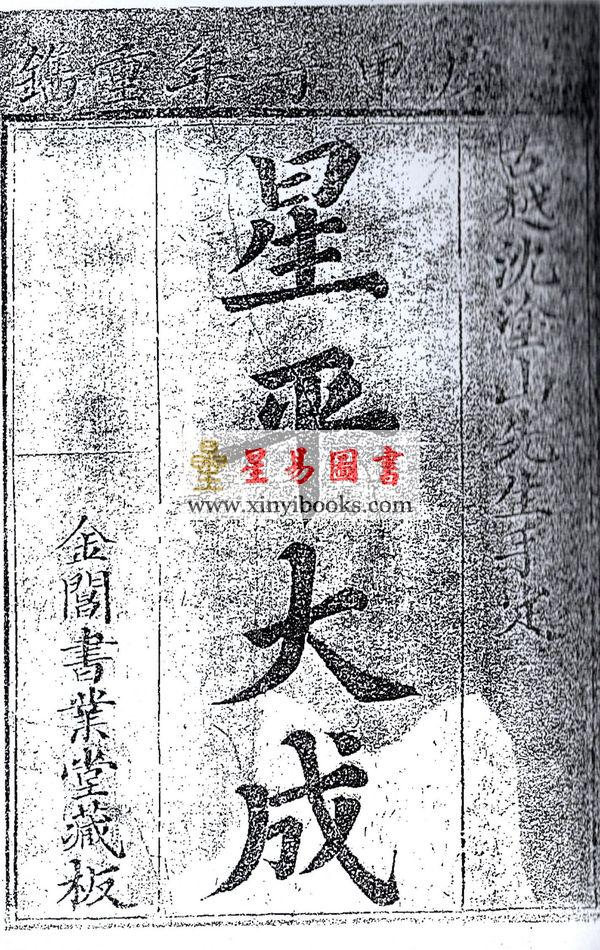 甲子年重鐫
古越沈塗山先生手定
星平大成
金閶書業堂藏板
星易圖書
www.xinyibooks.com